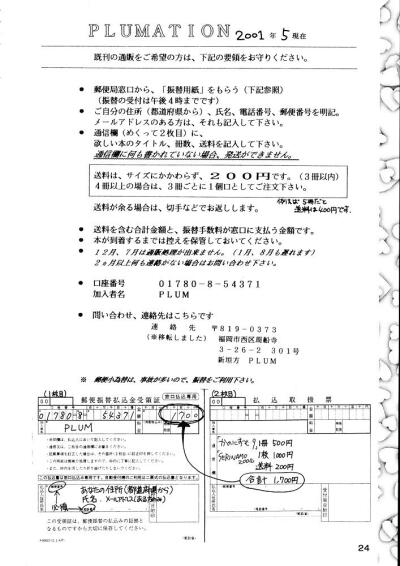 PLUMATION 2001年5現在
既刊の通販をご希望の方は、下記の要領をお守りください。
● 郵便局窓口から、「振替用紙」をもらう（下記参照）
（振替の受付は午後４時までです）
● ご自分の住所（都道府県から）、氏名、電話番号、郵便番号を明記。
メールアドレスのある方は、それも記入して下さい。
● 通信欄（めくって２枚目）に、
欲しい本のタイトル、冊数、送料を記入して下さい。
通信欄に何も書かれていない場合、発送ができません。
送料は、サイズにかかわらず、２００円です。（３冊以内）
４冊以上の場合は、３冊ごとに１個口としてご注文下さい。
例えば5冊だと
送料は400円です。
送料が余る場合は、切手などでお返しします。
● 送料を含む合計金額と、振替手数料が窓口に支払う金額です。
● 本が到着するまでは控えを保管しておいてください。
● １２月、７月は通販処理が出来ません。（１月、８月も遅れます）
２ヵ月以上何も連絡がない場合はお問い合わせ下さい。
● 口座番号 ０１７８０－８－５４３７１
加入者名 ＰＬＵＭ
● 問い合わせ、連絡先はこちらです
連絡先 〒８１９－０３７３
（※移転しました） 福岡市西区周船寺
３－２６－２ ３０１号
新垣方 ＰＬＵＭ
※ 郵便小為替は、事故が多いので、振替をご利用下さい。
(1枚目)
郵便振替払込金受領証
窓口払込専用
01780-8-54371
1700
PLUM
あなたの住所(都道府県から)
氏名・メールアドレス
必ず
この受領証は、郵便振替の払込みの証拠と
なるものですから大切に保存してください。
(2枚目)
払込取扱票
1冊 500円
1枚 1000円
送料 200円
合計 1,700円
24